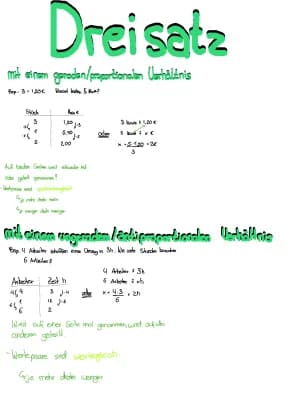 Dreisatz
mit einem geraden/proportionalen Verhältnis
Bsp. 3 = 1,20€ Wieviel kosten 5 Stück?
Stück Preis €
3 1,20
1
2,00
oder
3 Stück = 1,20€
x = 5·1,20 = 2€
3
Auf beiden Seiten wird entweder mal
oder geteilt genommen!
- Wertepaare sind
↳ je mehr desto mehr
↳ je weniger desto weniger
mit einem ungeraden/antiproportionalen Verhältnis
Bsp. 4 Arbeiter schaffen eine Umzug in 3h. Wie viele Stunden brauchen
6 Arbeiter?
Arbeiter Zeit h
4 3
1 12
6 2
oder
4 Arbeiter = 3h
6 Arbeiter = xh
x = 4·3 = 2h
6
Wird auf einer Seite mal genommen, wird auf der
anderen geteilt.
- Wertepaare sind
↳ je mehr desto weniger